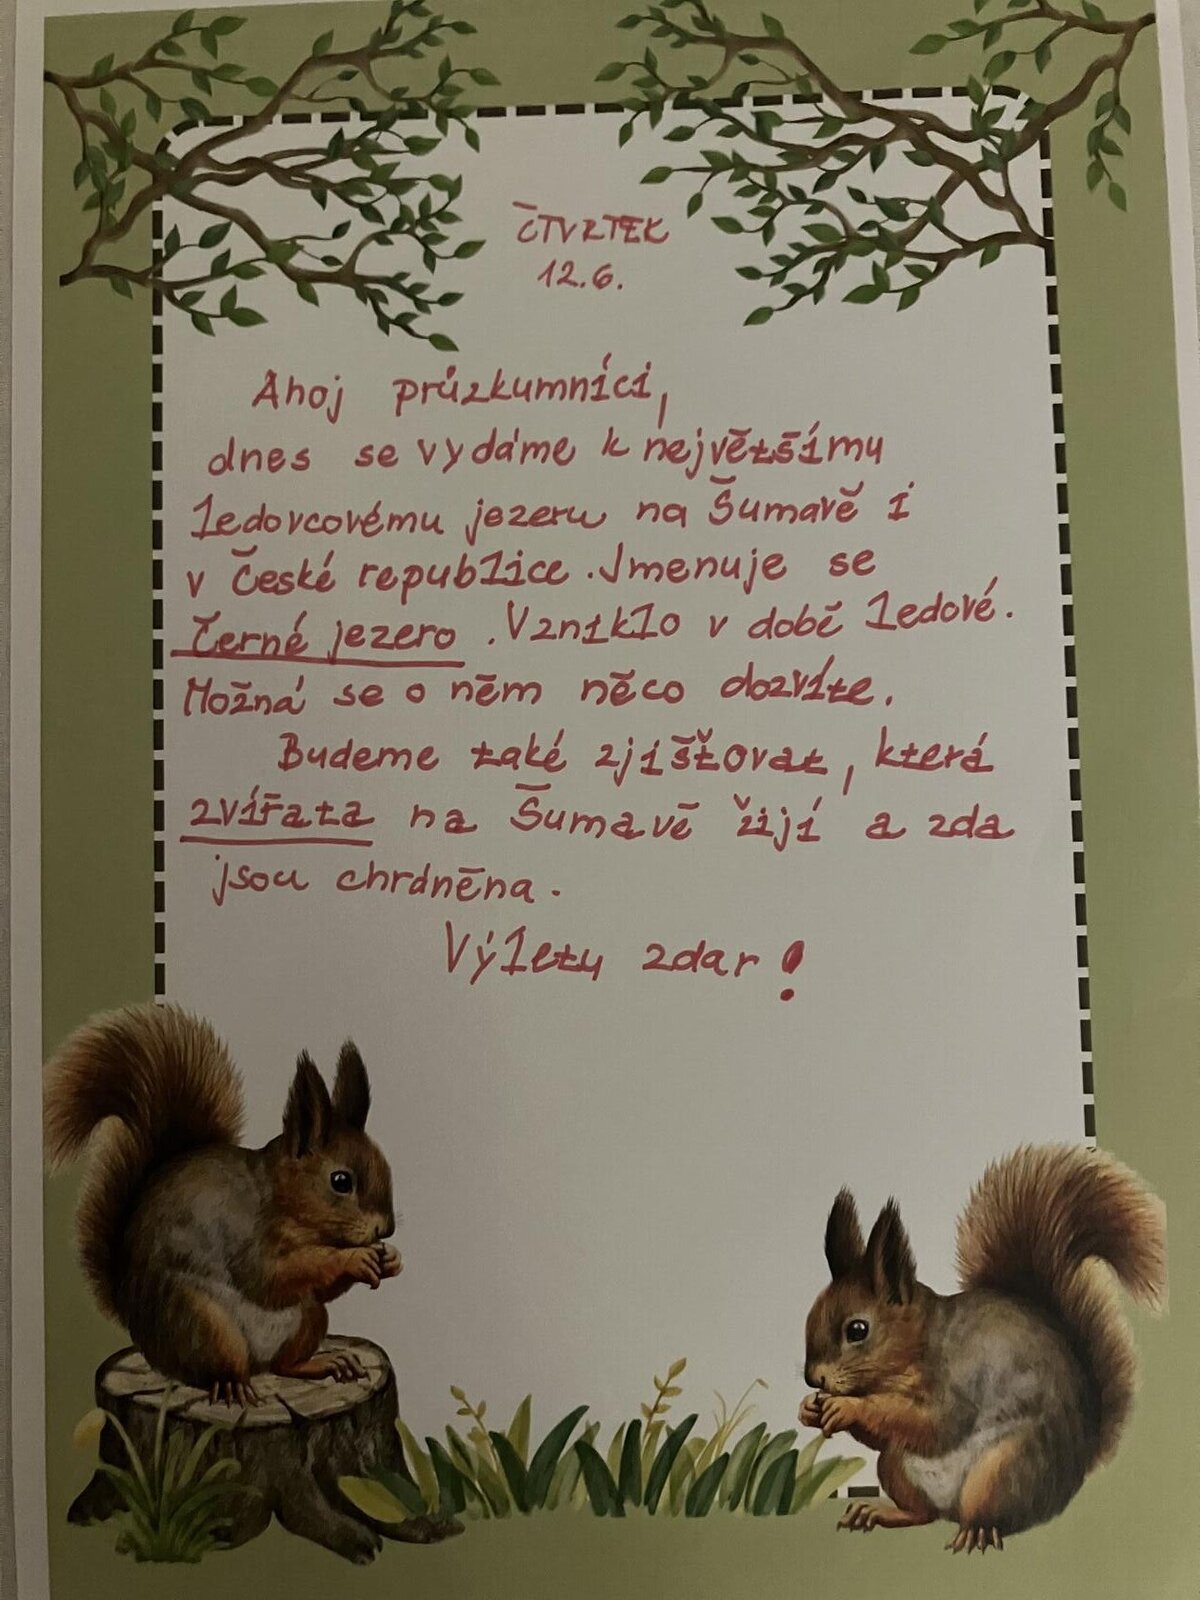 ČTVRTEK
12.6.
Ahoj průzkumníci,
dnes se vydáme k největšímu
ledovcovému jezeru na Šumavě i
v České republice. Jmenuje se
Černé jezero. Vzniklo v době ledové.
Možná se o něm něco dozvíte.
Budeme také zjišťovat, která
zvířata na Šumavě žijí a zda
jsou chráněna.
Výletu zdar!